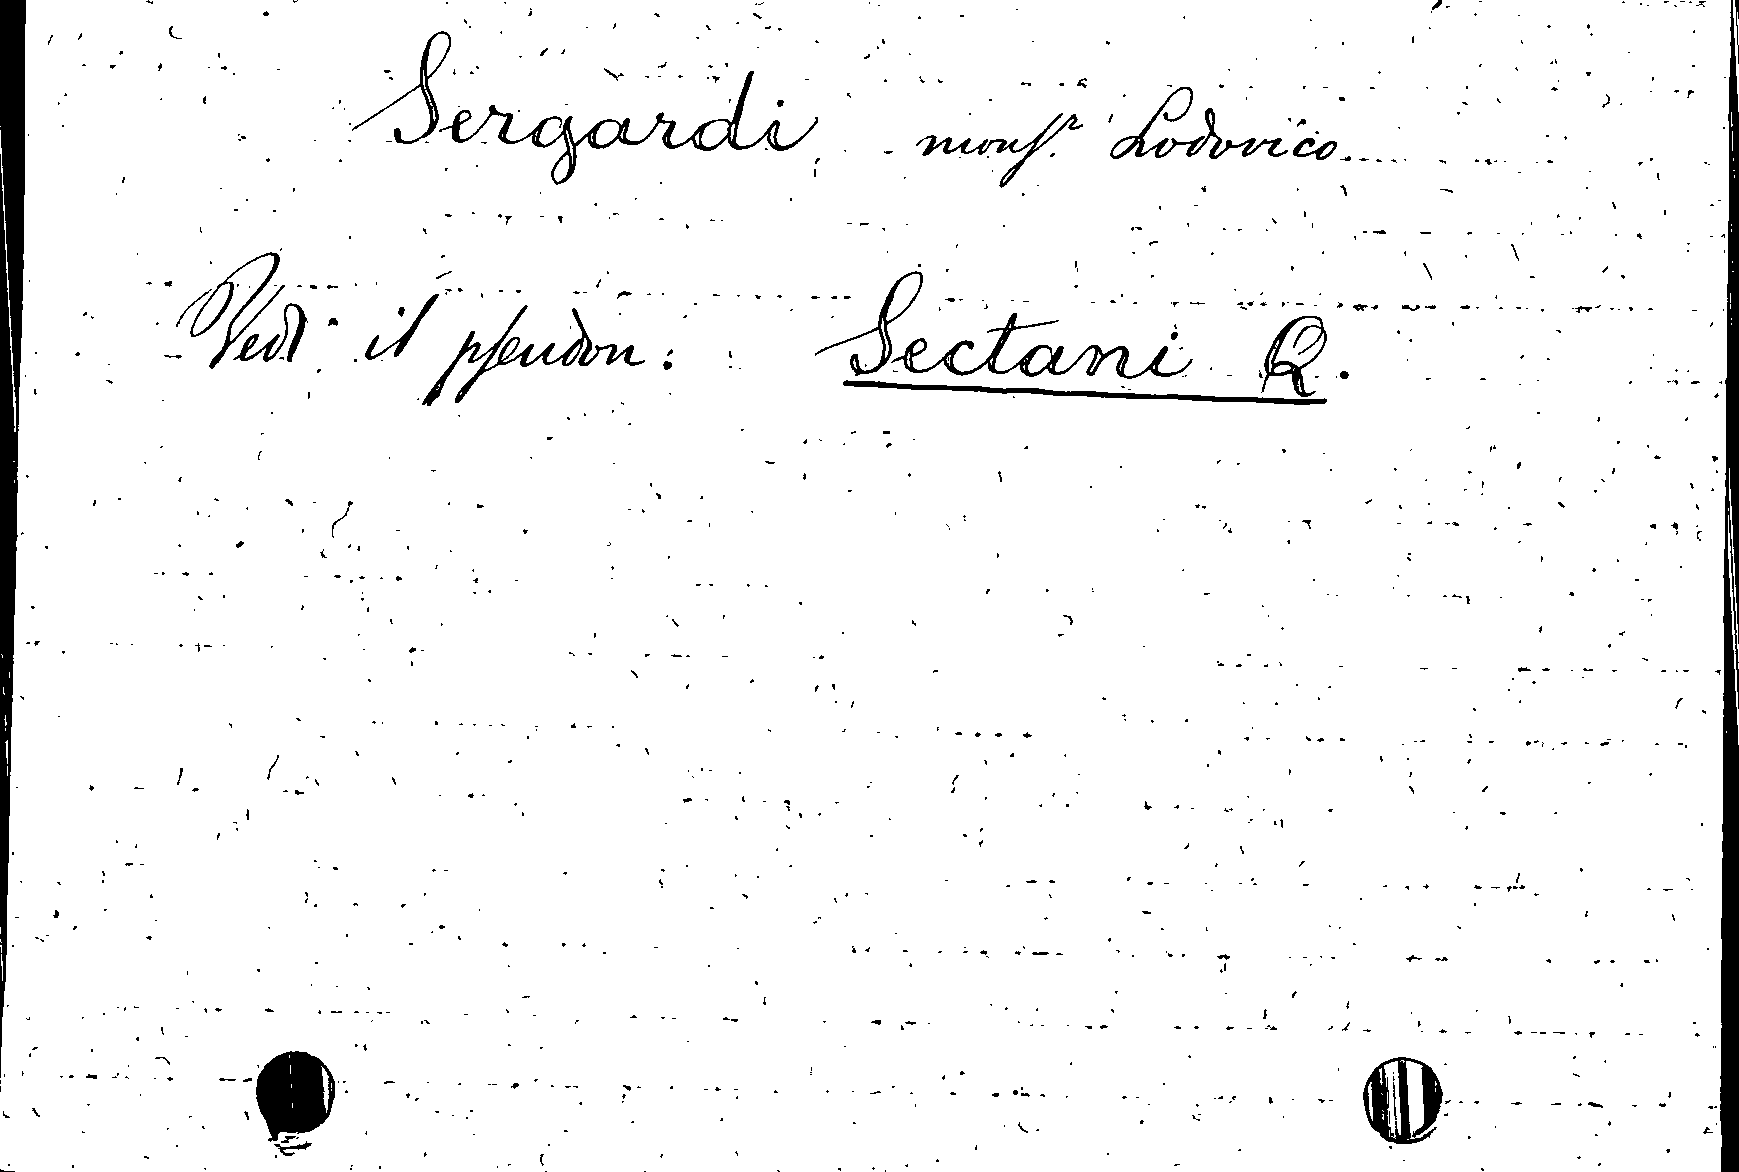 Sergardi monsr. Lodovico
Vedi il pseudon: Sectani Q.